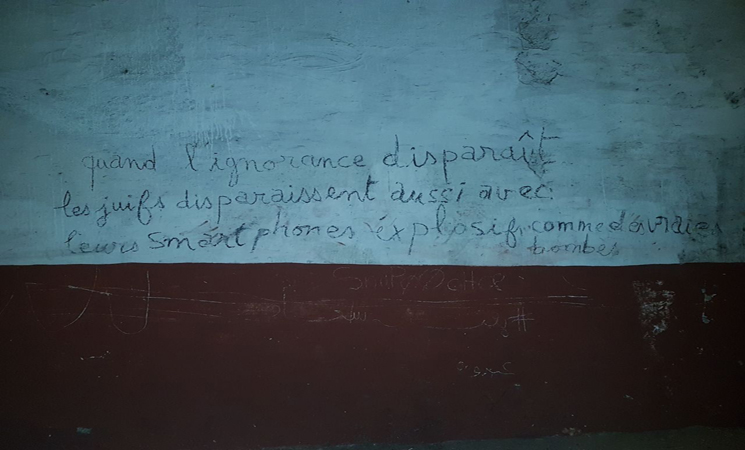 quand l'ignorance disparaît
les juifs disparaissent aussi avec
leurs smart phones éxplosifs comme de vraies
bombes